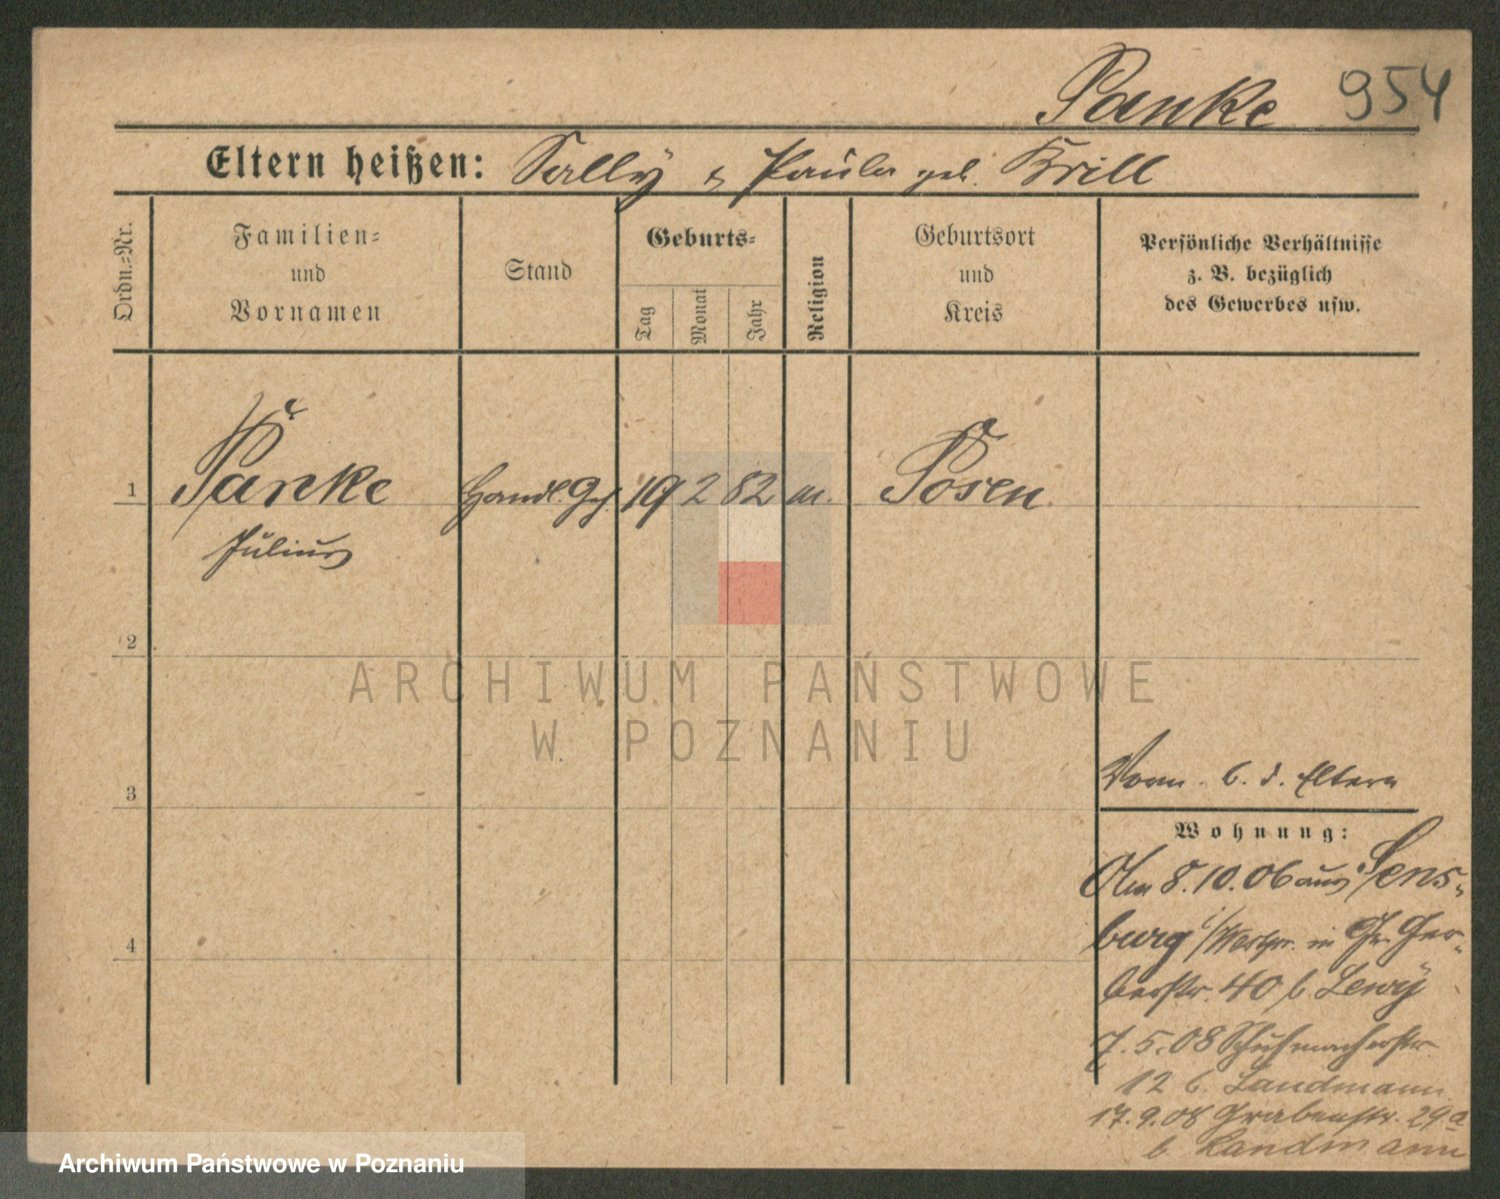 Panke 954
Eltern heißen: Sally & Paula geb. Krill
Ordn.=Nr.
Familien=
und
Vornamen
Stand
Geburts=
Tag
Monat
Jahr
Religion
Geburtsort
und
Kreis
Persönliche Verhältnisse
z. B. bezüglich
des Gewerbes usw.
1 Panke Handl. Geh. 19 2 82 m. Posen
Julius
2
ARCHIWUM PAŃSTWOWE
W POZNANIU
3
Vorm. b. d. Eltern
Wohnung:
Am 8.10.06 aus Sens-
burg i/Westpr. in Gr. Ger-
berstr. 40 b. Lewy
7.5.08 Schuhmacherstr.
12 b. Landmann
17.9.08 Grabenstr. 29a
b. Landmann
4
Archiwum Państwowe w Poznaniu